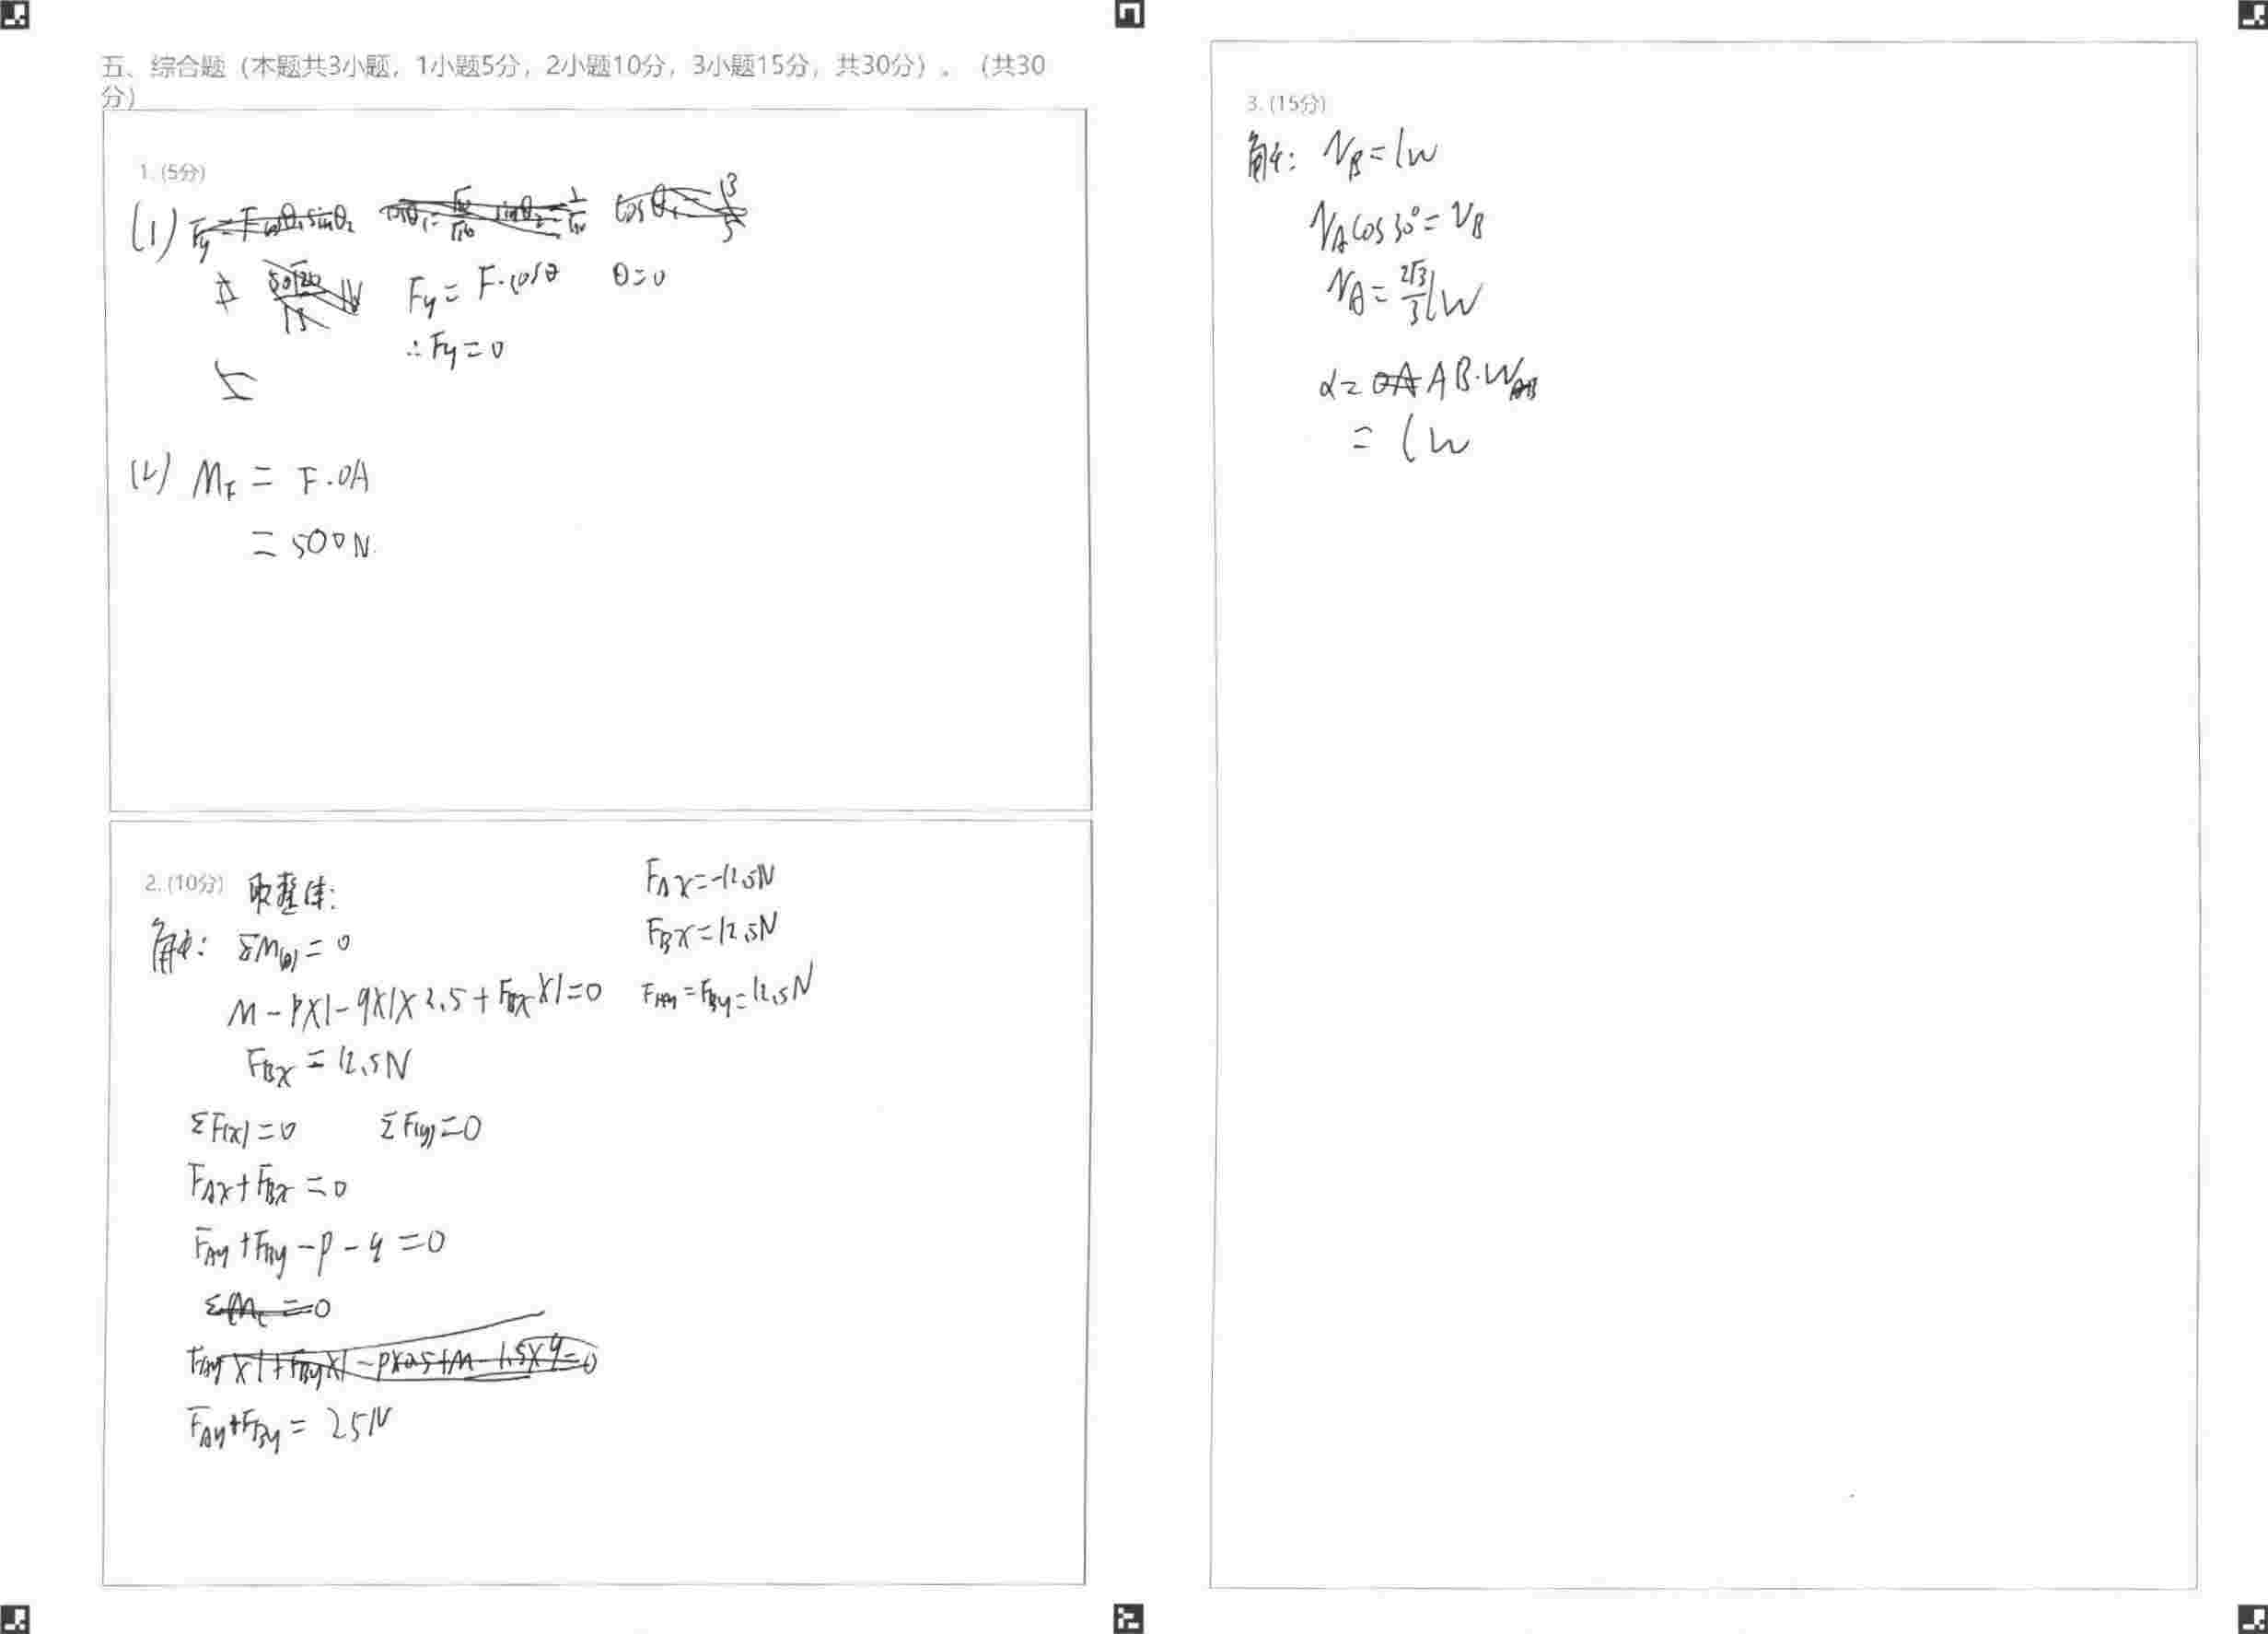 五、综合题（本题共3小题，1小题5分，2小题10分，3小题15分，共30分）。（共30
分）
1. (5分)
(1)
Fy = F·cosθ θ=0
∴Fy=0
(2) M_F = F·OA
= 500N.
2. (10分) 取整体:
解: ΣM(A)=0
M-P×1-q×1×2.5+F_Bx×1=0
F_Bx = 12.5N
ΣF(x)=0 ΣF(y)=0
F_Ax+F_Bx=0
F_Ay+F_By-P-q=0
F_Ay+F_By= 25N
F_Ax=-12.5N
F_Bx=12.5N
F_Ay=F_By=12.5N
3. (15分)
解: V_B=lw
V_A cos30°=V_B
V_A=2√3/3 lw
α= AB·W_AB
= lw